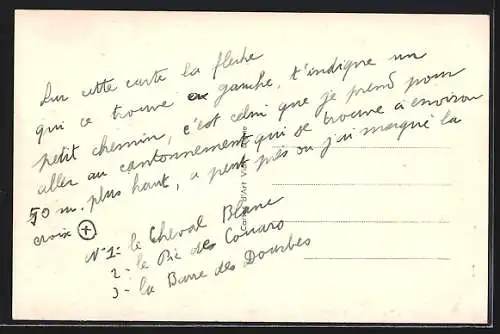 Sur cette carte la fleche
qui ce trouve a gauche, t'indique un
petit chemin, c'est celui que je prend pour
aller au cantonnement qui se trouve à environ
50 m. plus haut, a peut près ou j'ai marqué la
croix +
N°1 - le Cheval Blanc
2 - le Pic des Couard
3 - la Barre des Dourbes